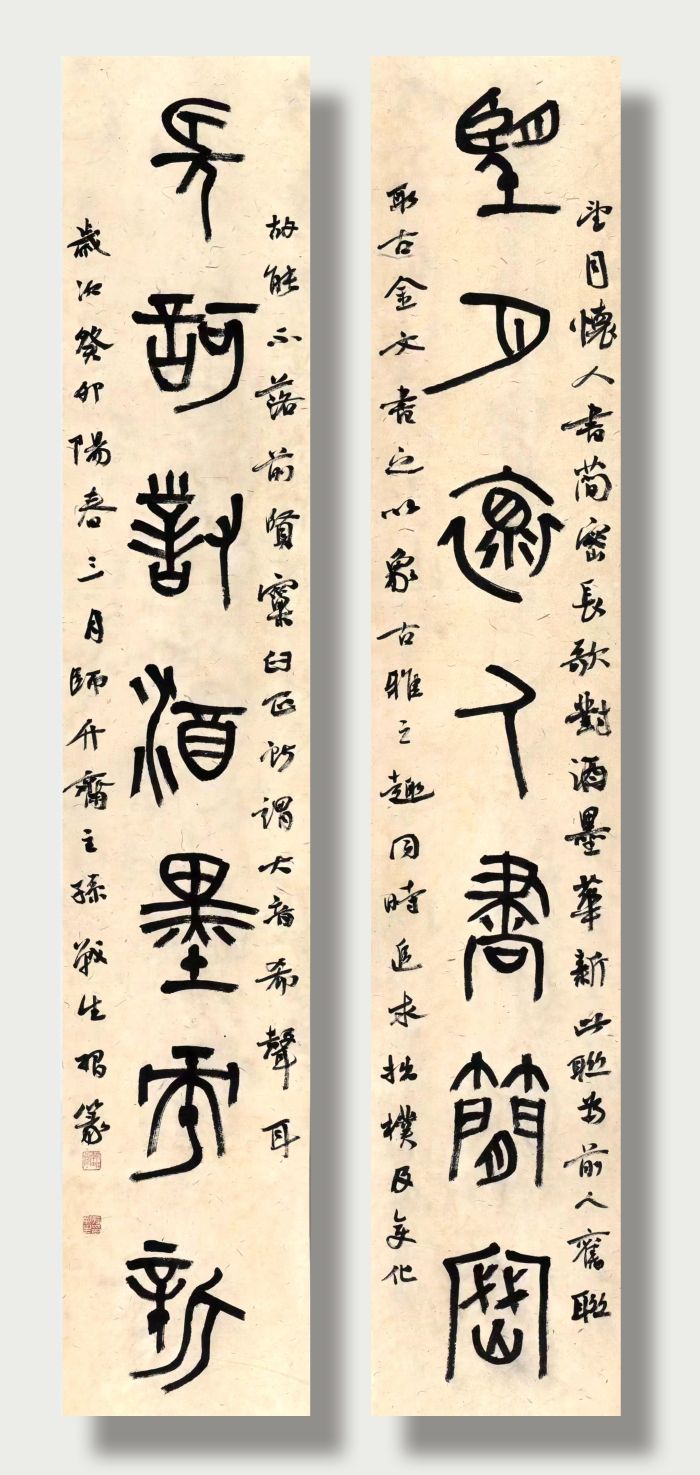 望月懷人書簡密長歌對酒墨華新此聯為前人舊聯
望月懷人書簡密
取古金文書之以象古雅之趣同時追求拙樸及變化
故能不落前賢窠臼正所謂大音希聲耳
長訶對酒墨華新
歲次癸卯陽春三月師竹齋主孫戰生篆